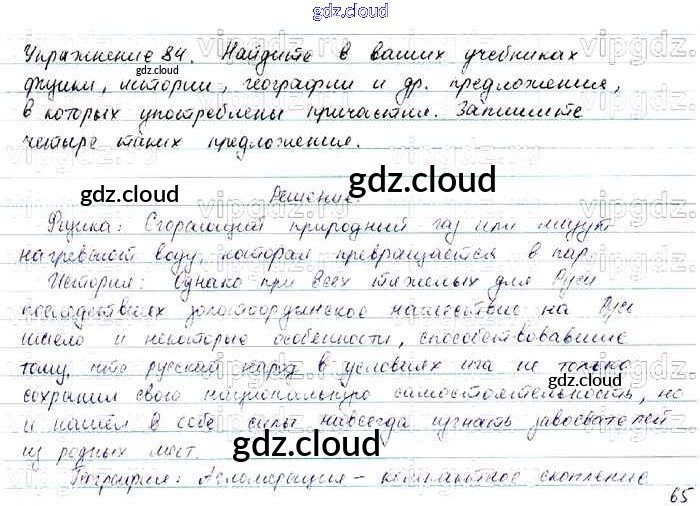 gdz.cloud
Упражнение 84. Найдите в ваших учебниках
физики, истории, географии и др. предложения,
gdz.cloud
в которых употреблены причастия. Запишите
четыре таких предложения.
gdz.cloud
gdz.cloud
Решение.
Физика: Сгорающий природный газ или мазут
нагревают воду, которая превращается в пар.
История: Однако при всех тяжелых для Руси
последствиях золотоордынское нашествие на Русь
имело и некоторые особенности, способствовавшие
тому, что русский народ в условиях ига не только
gdz.cloud
сохранил свою национальную самостоятельность, но
и нашёл в себе силы навсегда изгнать завоевателей
gdz.cloud
из родных мест.
География: Агломерация – компактное скопление
65